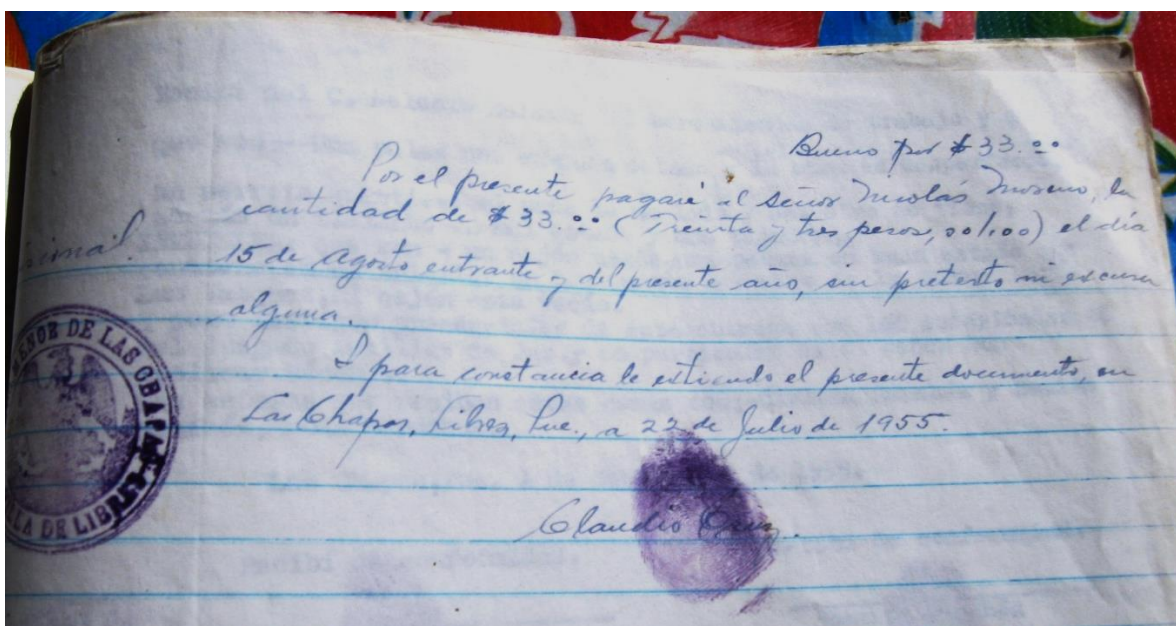 Bueno por $33.00
Por el presente pagaré al señor Nicolás Moreno, la
cantidad de $33.00 (Treinta y tres pesos, 00/100) el día
15 de Agosto entrante y del presente año, sin pretesto ni excusa
alguna.
I para constancia le estiendo el presente documento, en
Las Chapas, Libres, Pue., a 22 de Julio de 1955.
Claudio Cruz.
DE LAS CHAPAS
DE LIBRES